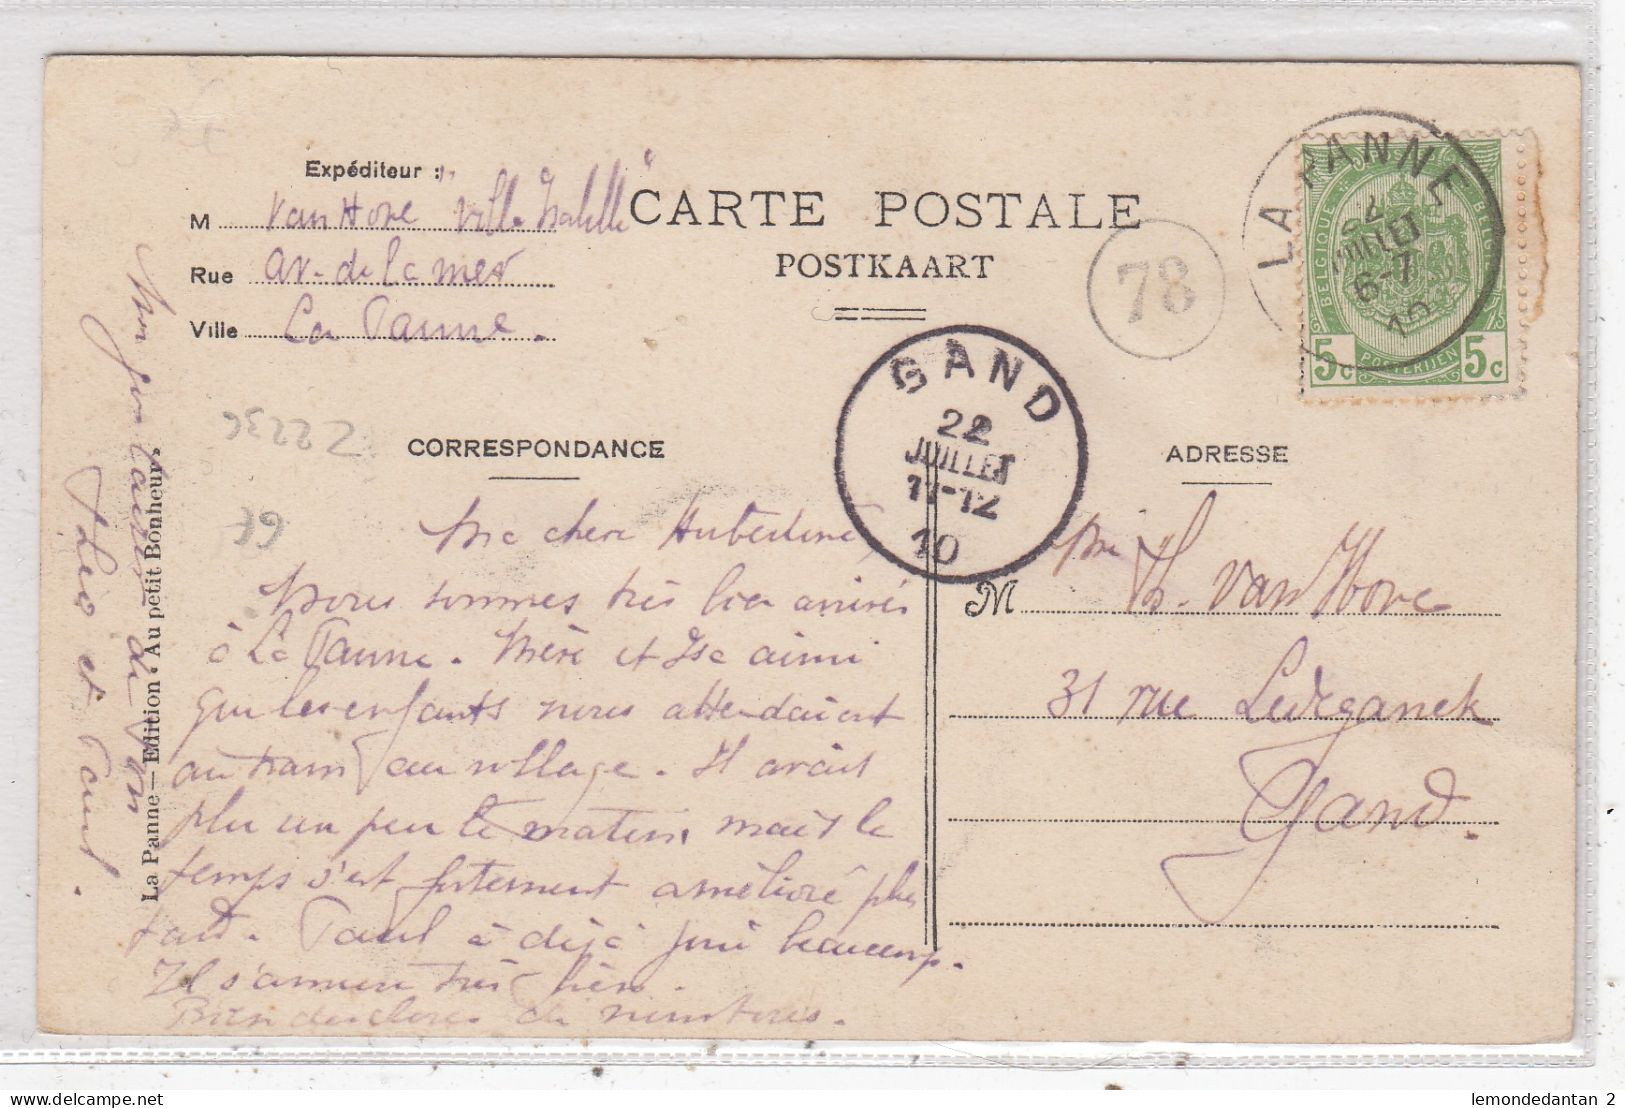 Expéditeur :
M Van Hove "Villa Isabelle"
Rue av. de la mer
Ville La Panne.
CARTE POSTALE
POSTKAART
78
LA PANNE
JUILLET
6-7
10
BELGIQUE
POSTERIJEN
5c 5c
GAND
22
JUILLET
11-12
10
CORRESPONDANCE
ADRESSE
Ma chère Hubertine,
Nous sommes très bien arrivés
à La Panne. Mère et Isa ainsi
que les enfants nous attendaient
au tram au village. Il avait
plu un peu le matin, mais le
temps s'est fortement amélioré plus
tard. Paul a déjà joué beaucoup.
Il s'amuse très bien.
Bien des choses de nous tous.
Théo et Paul.
La Panne — Edition : Au petit Bonheur.
M
H. Van Hove
31 rue Ledeganck
Gand.
22236
lemondedantan 2